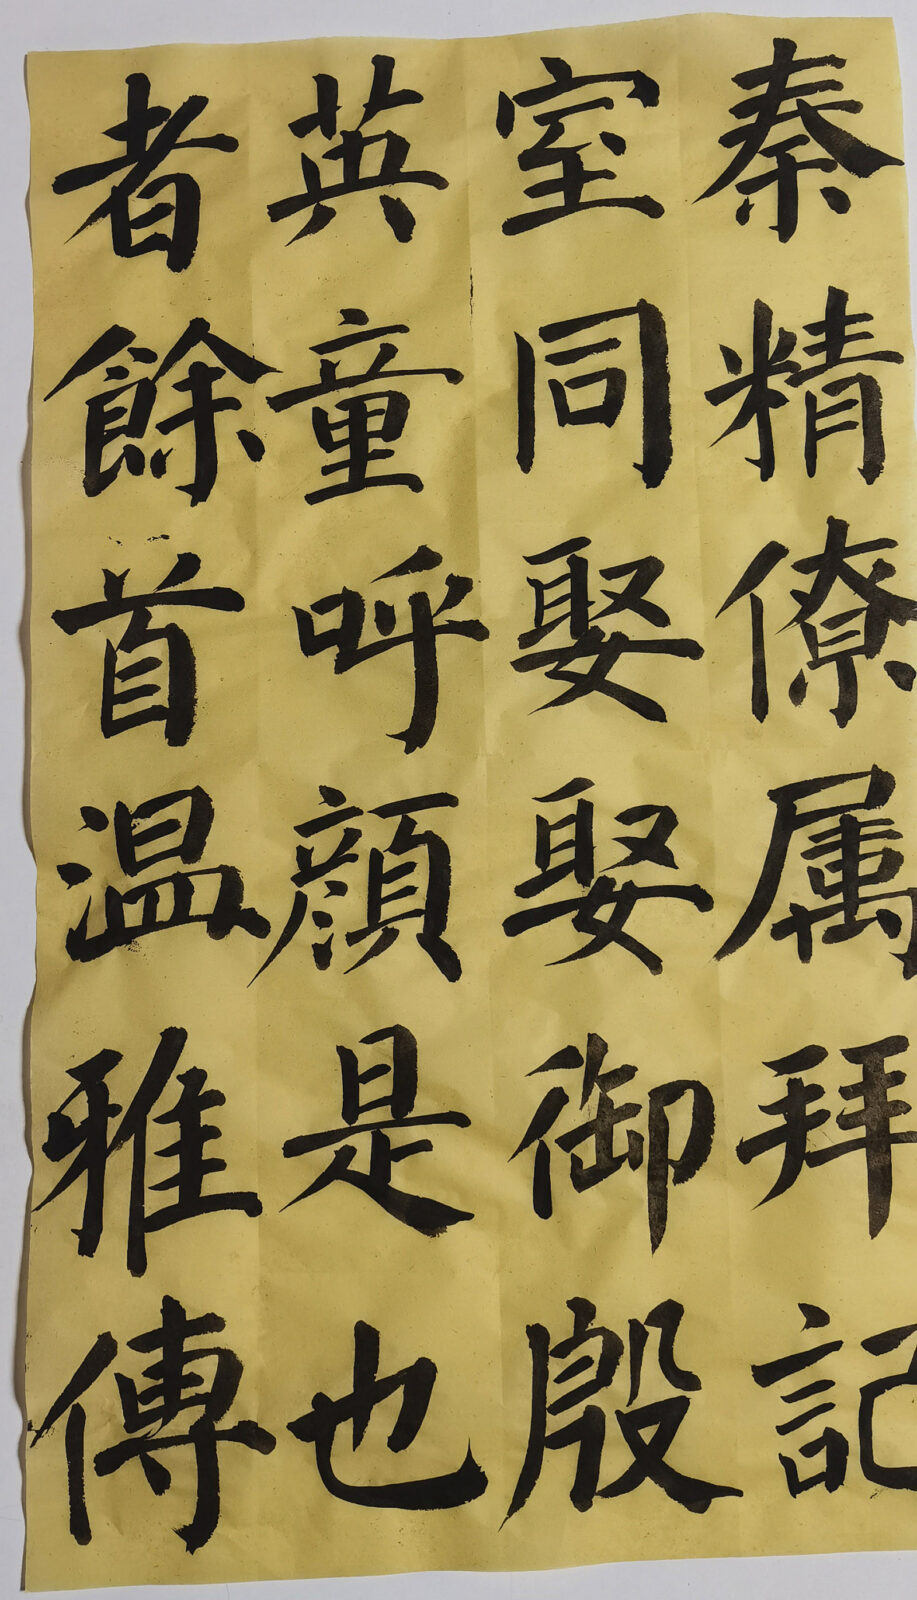 秦精僚属拜記
室同娶娶御殷
英童呼顔是也
者餘首温雅傳